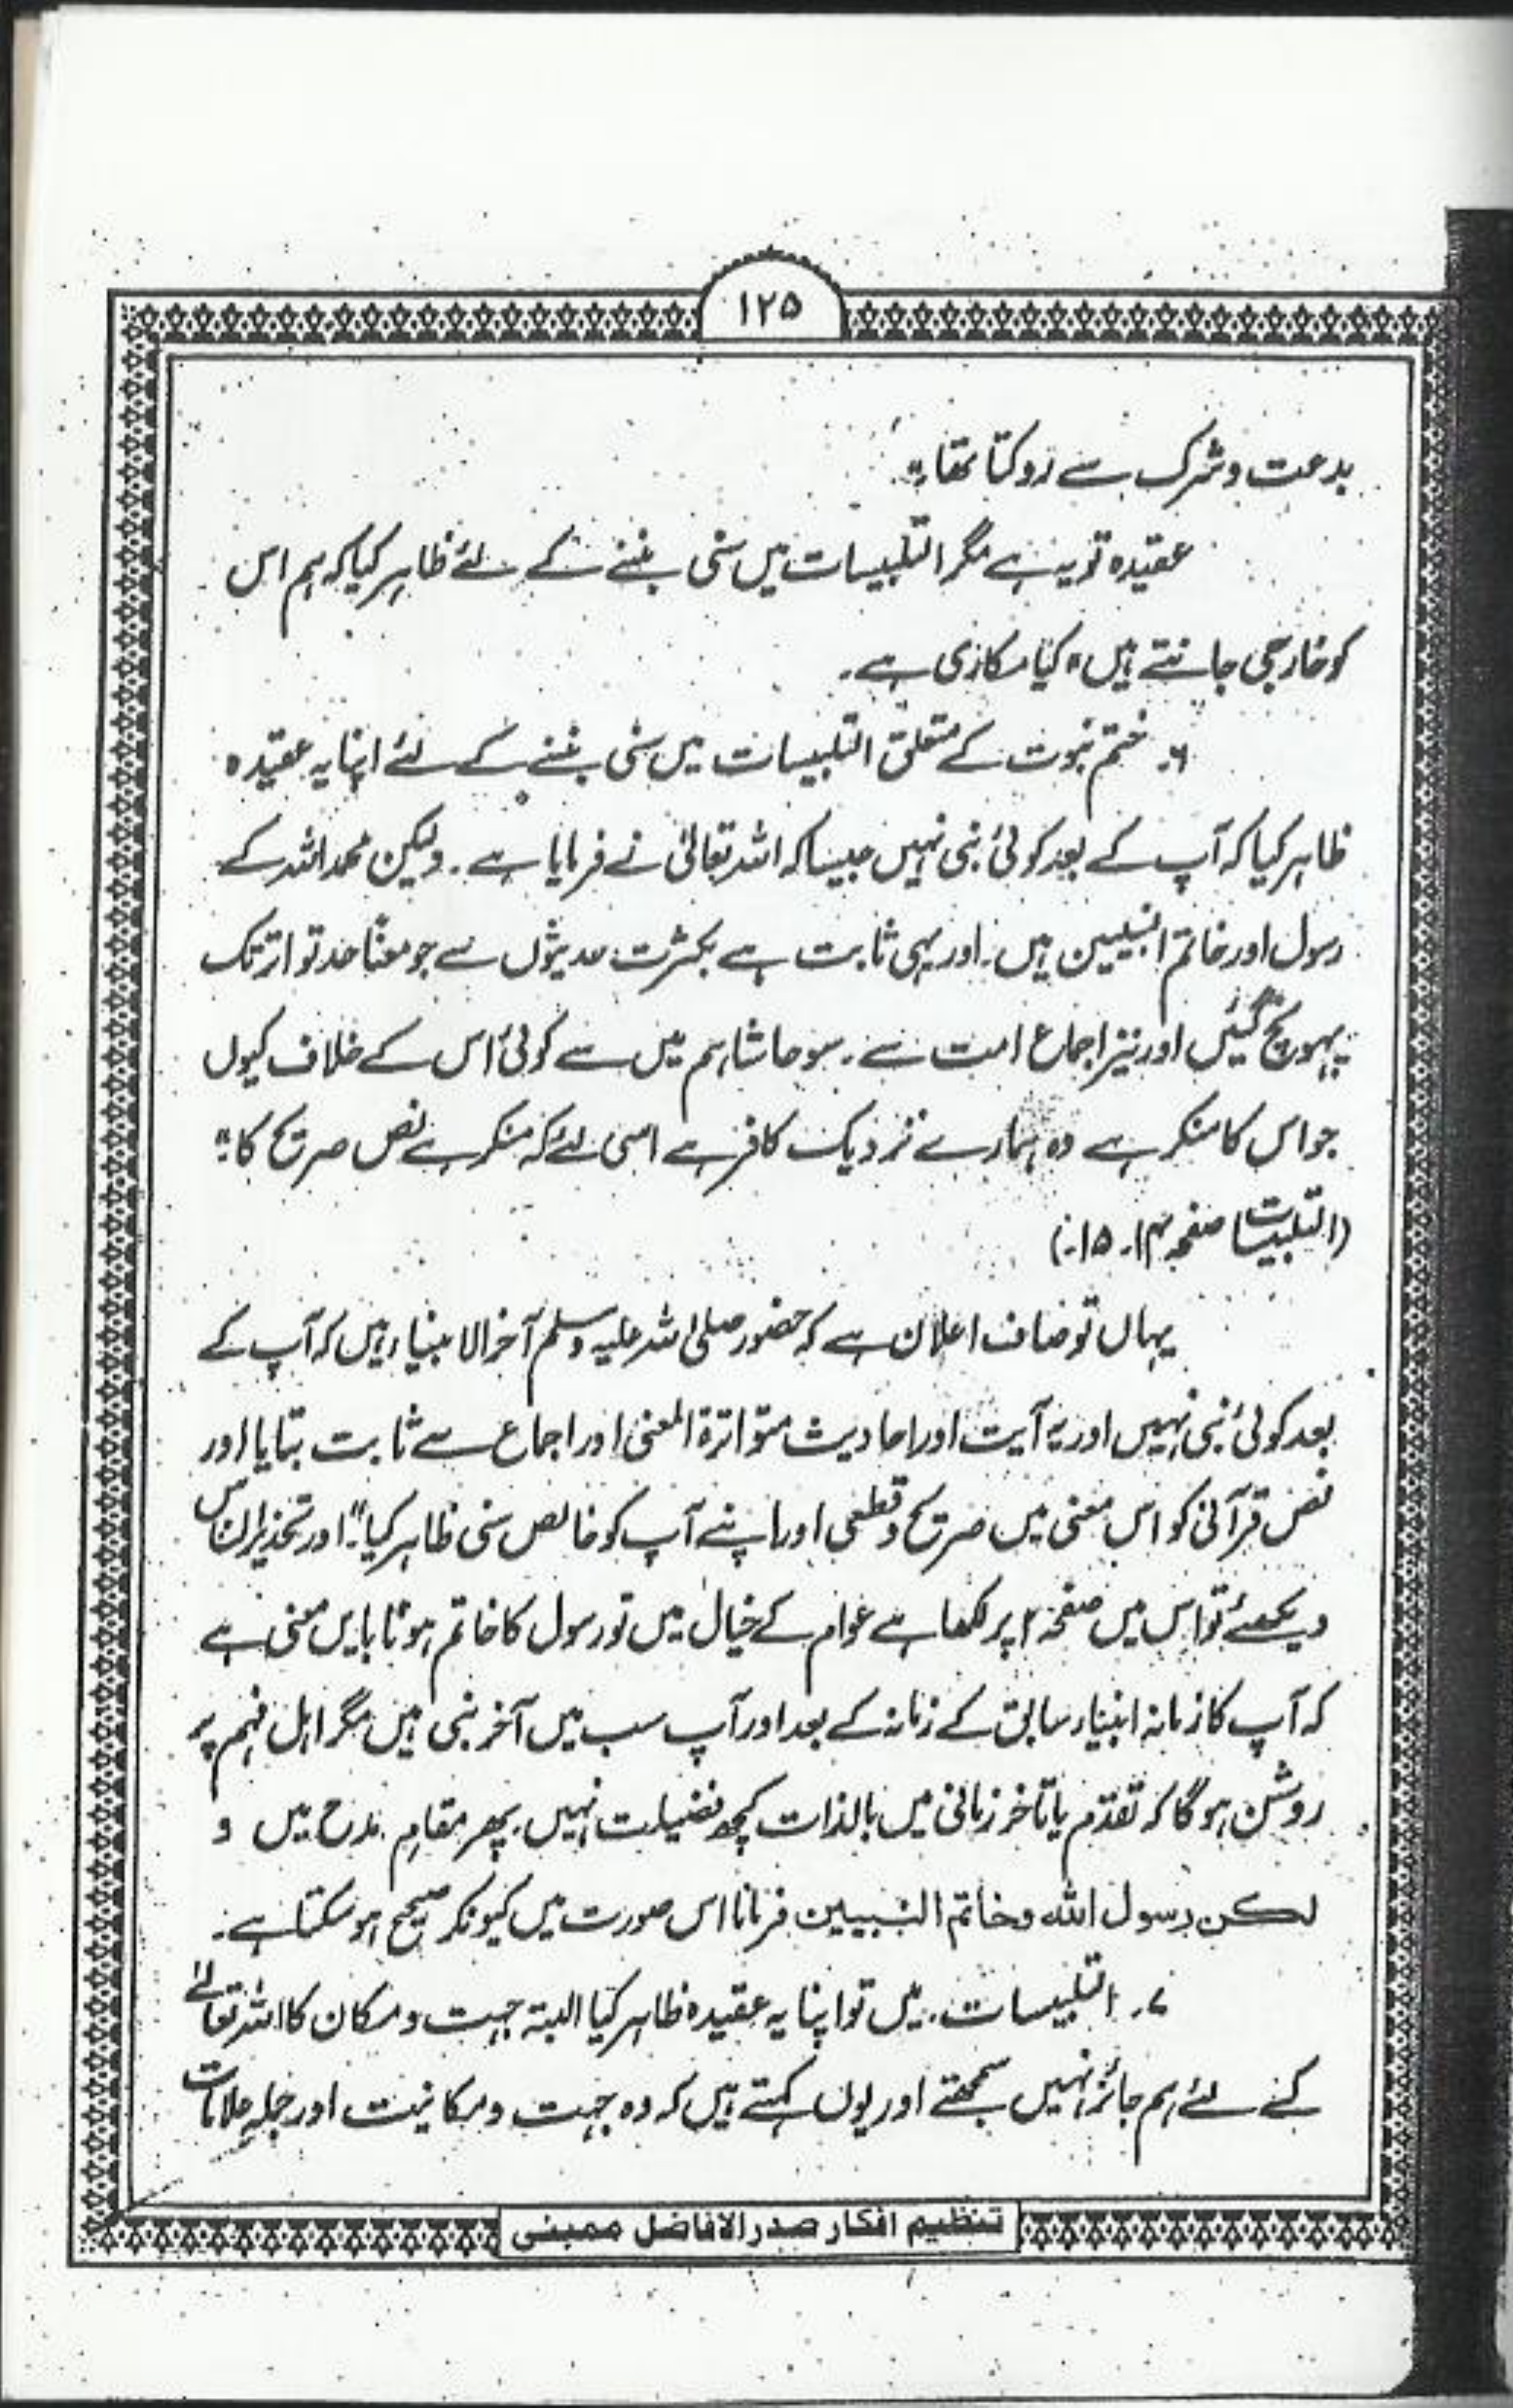 ۱۲۵
بدعت و شرک سے روکتا تھا۔"
عقیدہ تو یہ ہے مگر التلبیسات میں سنی بننے کے لئے ظاہر کیا کہ ہم اس
کو خارجی جانتے ہیں" کیا مکاری ہے۔
۶۔ ختم نبوت کے متعلق التلبیسات میں سنی بننے کے لئے اپنا یہ عقیدہ
ظاہر کیا کہ آپ کے بعد کوئی نبی نہیں جیسا کہ اللہ تعالیٰ نے فرمایا ہے۔ ولیکن محمد اللہ کے
رسول اور خاتم النبیین ہیں۔ اور یہی ثابت ہے بکثرت حدیثوں سے جو معناً حد تواتر تک
پہونچ گئیں اور نیز اجماع امت سے۔ سو حاشا ہم میں سے کوئی اس کے خلاف کیوں
جو اس کا منکر ہے وہ ہمارے نزدیک کافر ہے اسی لئے کہ منکر ہے نص صریح کا۔"
(التلبیسات صفحہ ۱۴۔ ۱۵۔)
یہاں تو صاف اعلان ہے کہ حضور صلی اللہ علیہ وسلم آخر الانبیاء ہیں کہ آپ کے
بعد کوئی نبی نہیں اور یہ آیت اور احادیث متواترۃ المعنی اور اجماع سے ثابت بتایا اور
نص قرآنی کو اس معنی میں صریح و قطعی اور اپنے آپ کو خالص سنی ظاہر کیا۔" اور تحذیر الناس
دیکھئے تو اس میں صفحہ ۲ پر لکھا ہے عوام کے خیال میں تو رسول کا خاتم ہونا بایں معنی ہے
کہ آپ کا زمانہ انبیاء سابق کے زمانہ کے بعد اور آپ سب میں آخر نبی ہیں مگر اہل فہم پر
روشن ہو گا کہ تقدم یا تاخر زمانی میں بالذات کچھ فضیلت نہیں۔ پھر مقام مدح میں و
لکن رسول اللہ وخاتم النبیین فرمانا اس صورت میں کیونکر صحیح ہو سکتا ہے۔
۷۔ التلبیسات۔ میں تو اپنا یہ عقیدہ ظاہر کیا البتہ جہت و مکان کا اللہ تعالےٰ
کے لئے ہم جائز نہیں سمجھتے اور یوں کہتے ہیں کہ وہ جہت و مکانیت اور جملہ علامات
تنظیم افکار صدر الافاضل ممبئی